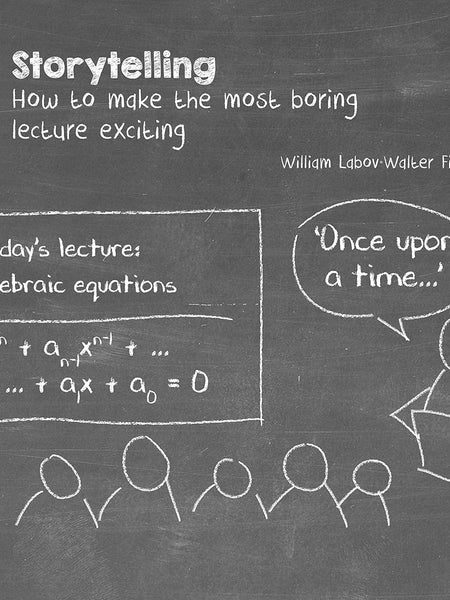 Storytelling
How to make the most boring
lecture exciting
William Labov·Walter Fi
day's lecture:
ebraic equations
ⁿ + aₙ₋₁xⁿ⁻¹ + ...
... + a₁x + a₀ = 0
'Once upon
a time...'